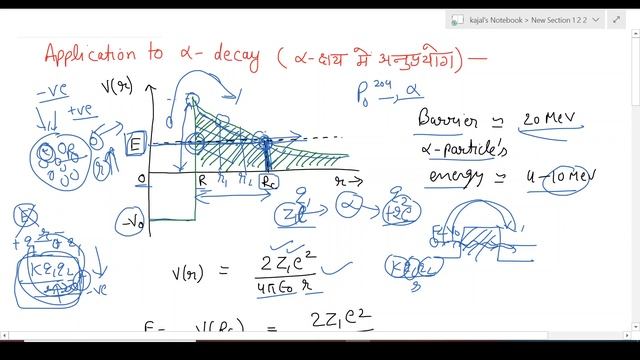 kajal's Notebook > New Section 1 2 2
Application to α- decay ( α-क्षय में अनुप्रयोग) —
-ve
+ve
V(r)
E
O
R
r₁
r₂
Rc
r→
-V₀
Po²⁰⁴ → α
Barrier ≃ 20 MeV
α-particle's
energy ≃ 4-10 MeV
Z₁e → α → +2e
V(r) = 2Z₁e² / 4πε₀ r
-ve
E = V(Rc) = 2Z₁e²